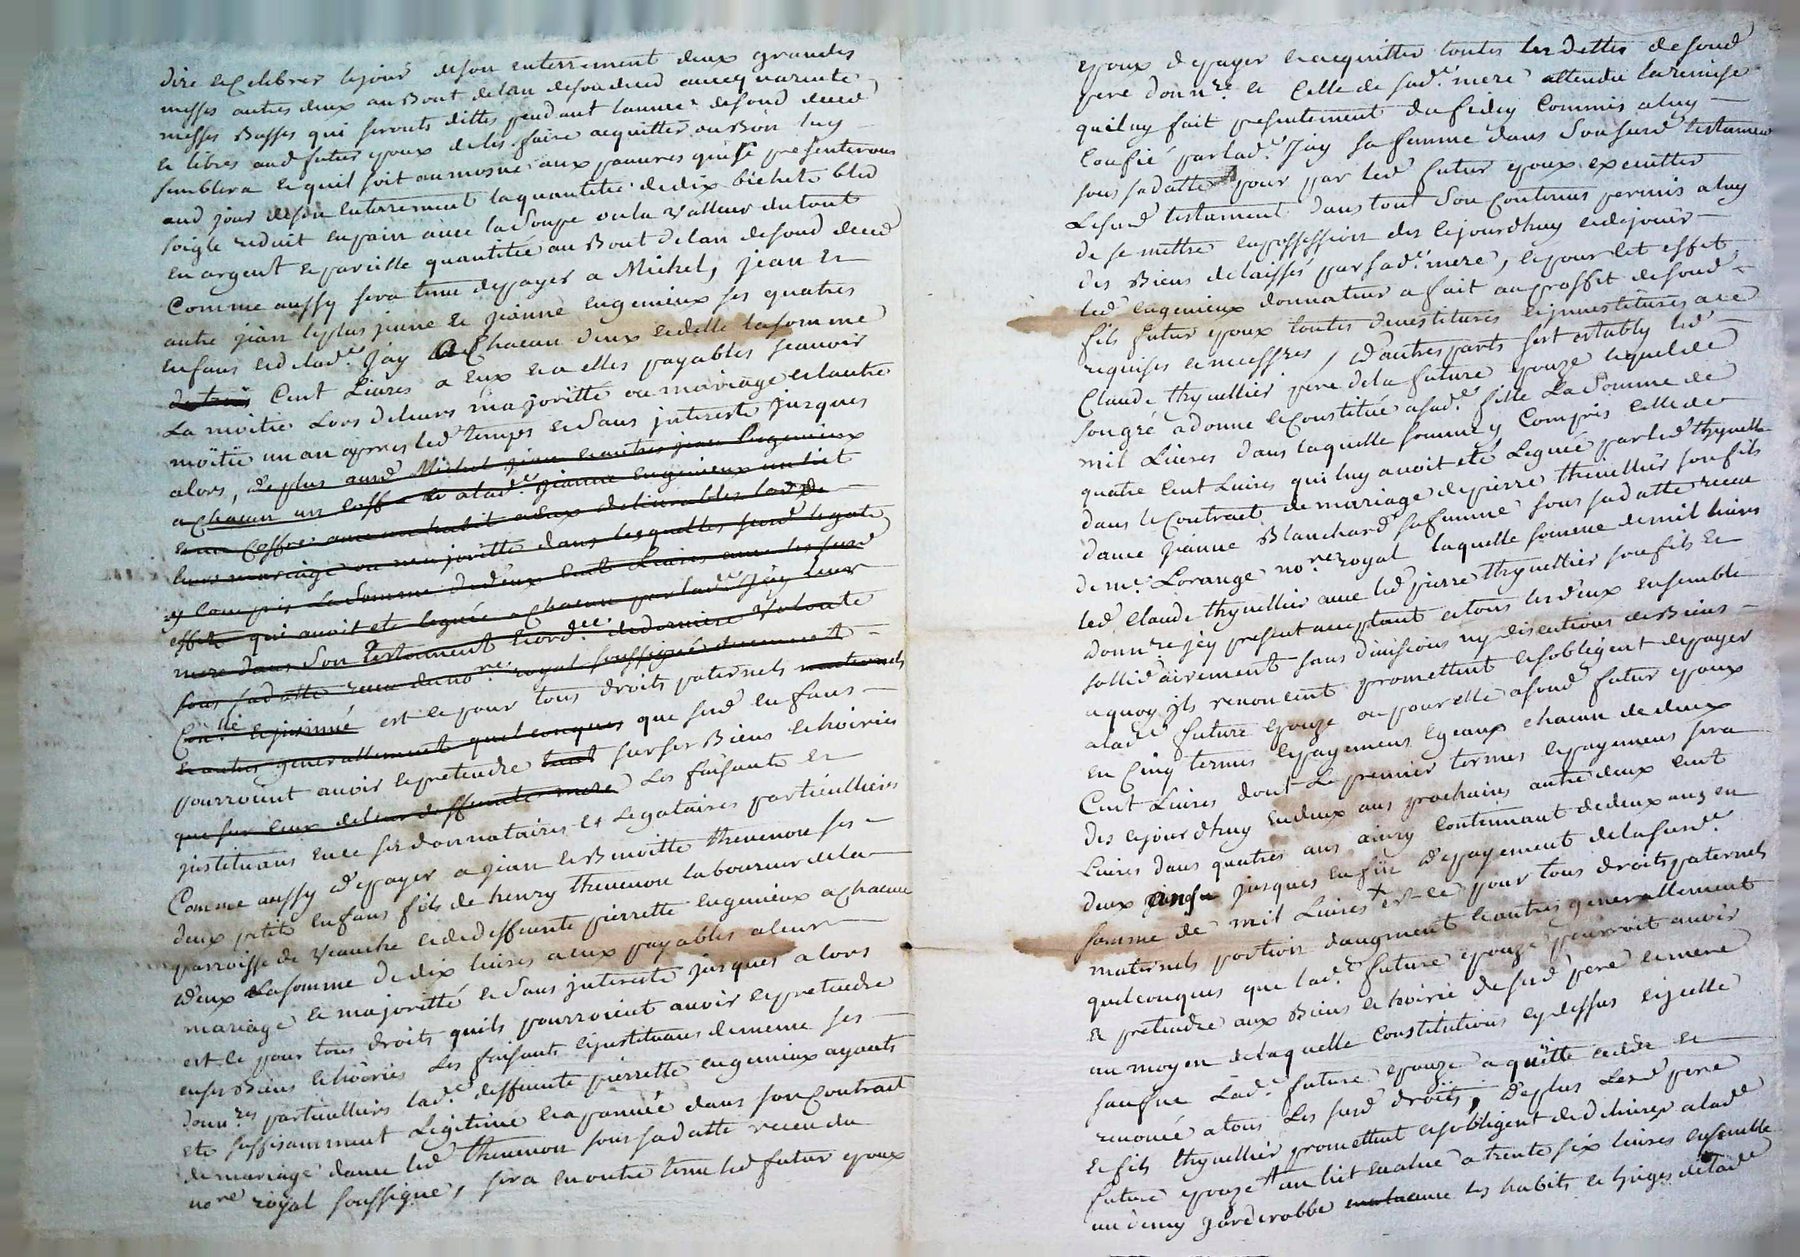 dire et Celebrer le jour deson enterrement deux grandes
messes autres deux au Bout delan deson deced avecq quarente
messes Basses qui seronts dittes pendant lannee desond deced
et libres aud futur epoux deles faire acquitter ou Bon luy
semblera et quil soit aumosné aux pauvres quise presenterons
aud jour deson enterrement laquantitée dedix bichets bled
soigle reduit enpain avec laSoupe oula Valleur dutout
en argent et pareille quantitée au Bout delan desond deced
Comme aussy sera tenu depayer a Michel, jean et
autre jean leplus jeune et jeanne Eugenieux ses quatres
enfans et de lade Jay a Chacun deux et delle lasomme
de trois Cent Livres a Eux et a elles payables scavoir
La moitié Lors deleurs majoritté ou mariage et lautre
moitié un an apres led temps et Sans interests jusques
alors, deplus ausd Michel jean et autre jean Eugenieux
a Chacun un coffre et a lade jeanne Eugenieux un lict
et un Coffre avec un habit a Eux delivrables lors de
leurs mariage ou majoritté dans lesquelles susd legats
y Compris la Somme de deux Cent Livres avec les susd
effets qui avoit eté leguée a Chacun par lade Jay leur
mere dans Son Testament et ordce dederniere Volonté
sous sadatte receu du nore royal soussigné duement
Conllé et insinué est ce pour tous droits paternels maternels
et autres generallement quelconques que susd enfans
pourroient avoir et pretendre tant sur ses Biens et hoiries
que sur Ceux de leur deffunte mere Les faisants et
justituans en ce ses donnataires et Legataires particulliers
Comme aussy depayer a jean et Benoitte thevenon ses
deux petits enfans fils de henry thevenon laboureur dela
parroisse de Veauche et dedeffunte pierrette Eugenieux a Chacun
deux Lasomme de dix livres a eux payables a leur
mariage et majoritté et Sans jnterests jusques alors
est ce pour tous droits quils pourroient avoir et pretendre
enses Biens et hoiries Les faisants et justituans de meme ses
donnres particulliers lade deffunte pierrette eugenieux ayants
eté suffisamment Legitimé et apanneé dans son Contract
de mariage davec led thevenon sous sadatte receu du
nore royal soussigné, sera en outre tenu led futur epoux
epoux depayer et acquitter toutes les dettes desond
pere donnre et Celle de sade mere attendu laremise
quil luy fait presentement du fideycommis a luy
Confié par lade Jay sa femme dans Sonsusd testament
sous sadatte pour par led futur epoux executter
Lesusd testament dans tout Son Contenus permis a luy
de se mettre en possession des cejourdhuy et dejouir
des Biens delaissés par sade mere, et pour cet effet
led Eugenieux donnateur a fait au proffit desond
fils futur epoux toutes devestitures et jnvestitures ace
requises et necessres, et dautres parts sest establÿ led
Claude thyvellier pere dela future epouze lequel de
songré a donné et Constitué asade fille La Somme de
mil Livres dans laquelle somme y Compris Celle de
quatre Cent Livres qui luy avoit eté Leguée par led thyvellier
dans le Contract de mariage de pierre thevellier son fils
davec Jeanne Blanchard sa femme sous sadatte receu
de me Lorange nore royal laquelle somme de mil livres
led Claude thyvellier avec led pierre thyvellier son fils et
donnre jcy present acceptant et tous les deux ensemble
sollidairement sans divisions ny discutions de Biens
a quoy jls renoncent promettent et sobligent depayer
alade future epouze ou pour elle asond futur epoux
en Cinq termes et payemens egaux chacun de deux
Cent Livres dont Le premier termes et payemens sera
des cejourdhuy en deux ans prochains autre deux Cent
Livres dans quatres ans ainsy Continuant dedeux ans en
deux jusques enfin depayement delasusde
somme de mil Livres + est ce pour tous droits paternels
maternels portion daugment et autres generallement
quelconques que lade future epouze pourroit avoir
et pretendre aux Biens et hoirie desusd pere et mere
au moyen delaquelle Constitutions cydessus et jcelle
sauf ... Lade future epouze a quitté cedde et
renoncé a tous Les susd droits, Deplus Lesd pere
et fils thyvellier promettent et sobligent dedelivrer a lade
future epouze un lict evalué a trente six livres ensemble
un demy garderobbe avec les habits et linges delade